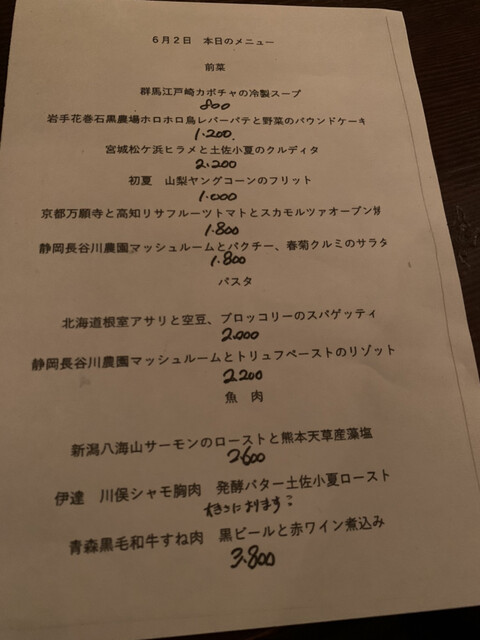 6月2日 本日のメニュー
前菜
群馬江戸崎カボチャの冷製スープ
800
岩手花巻石黒農場ホロホロ鳥レバーパテと野菜のパウンドケーキ
1.200
宮城松ケ浜ヒラメと土佐小夏のクルディタ
2.200
初夏 山梨ヤングコーンのフリット
1.000
京都万願寺と高知リサフルーツトマトとスカモルツァオーブン焼
1.800
静岡長谷川農園マッシュルームとパクチー、春菊クルミのサラダ
1.800
パスタ
北海道根室アサリと空豆、ブロッコリーのスパゲッティ
2.000
静岡長谷川農園マッシュルームとトリュフペーストのリゾット
2.200
魚 肉
新潟八海山サーモンのローストと熊本天草産藻塩
2600
伊達 川俣シャモ胸肉 発酵バター土佐小夏ロースト
青森黒毛和牛すね肉 黒ビールと赤ワイン煮込み
3.800